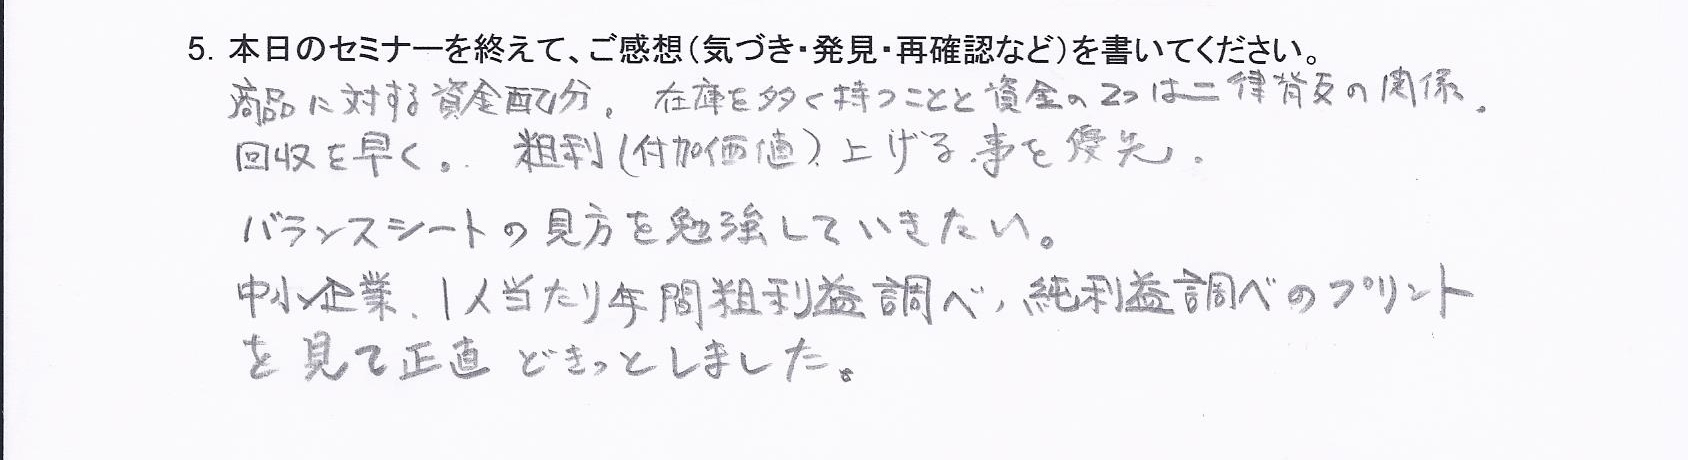 5. 本日のセミナーを終えて、ご感想（気づき・発見・再確認など）を書いてください。
商品に対する資金配分。 在庫を多く持つことと資金の2つは二律背反の関係。
回収を早く。 粗利（付加価値）上げる事を優先。
バランスシートの見方を勉強していきたい。
中小企業、1人当たり年間粗利益調べ、純利益調べのプリント
を見て正直どきっとしました。